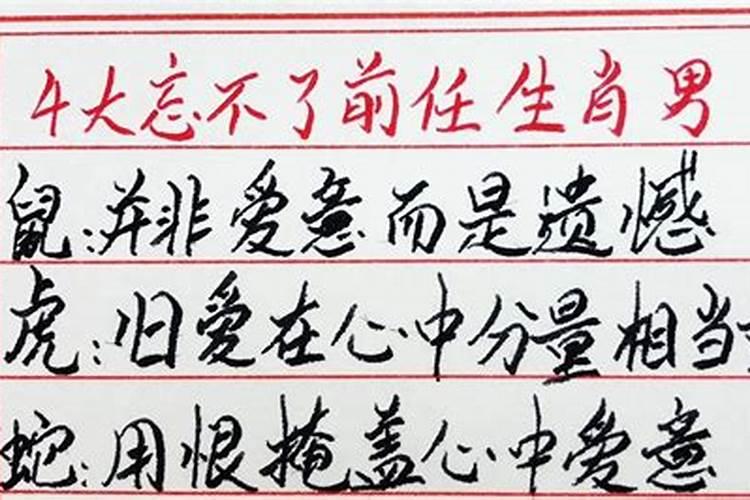 4大忘不了前任生肖男
鼠:并非爱意而是遗憾
虎:旧爱在心中分量相当
蛇:用恨掩盖心中爱意